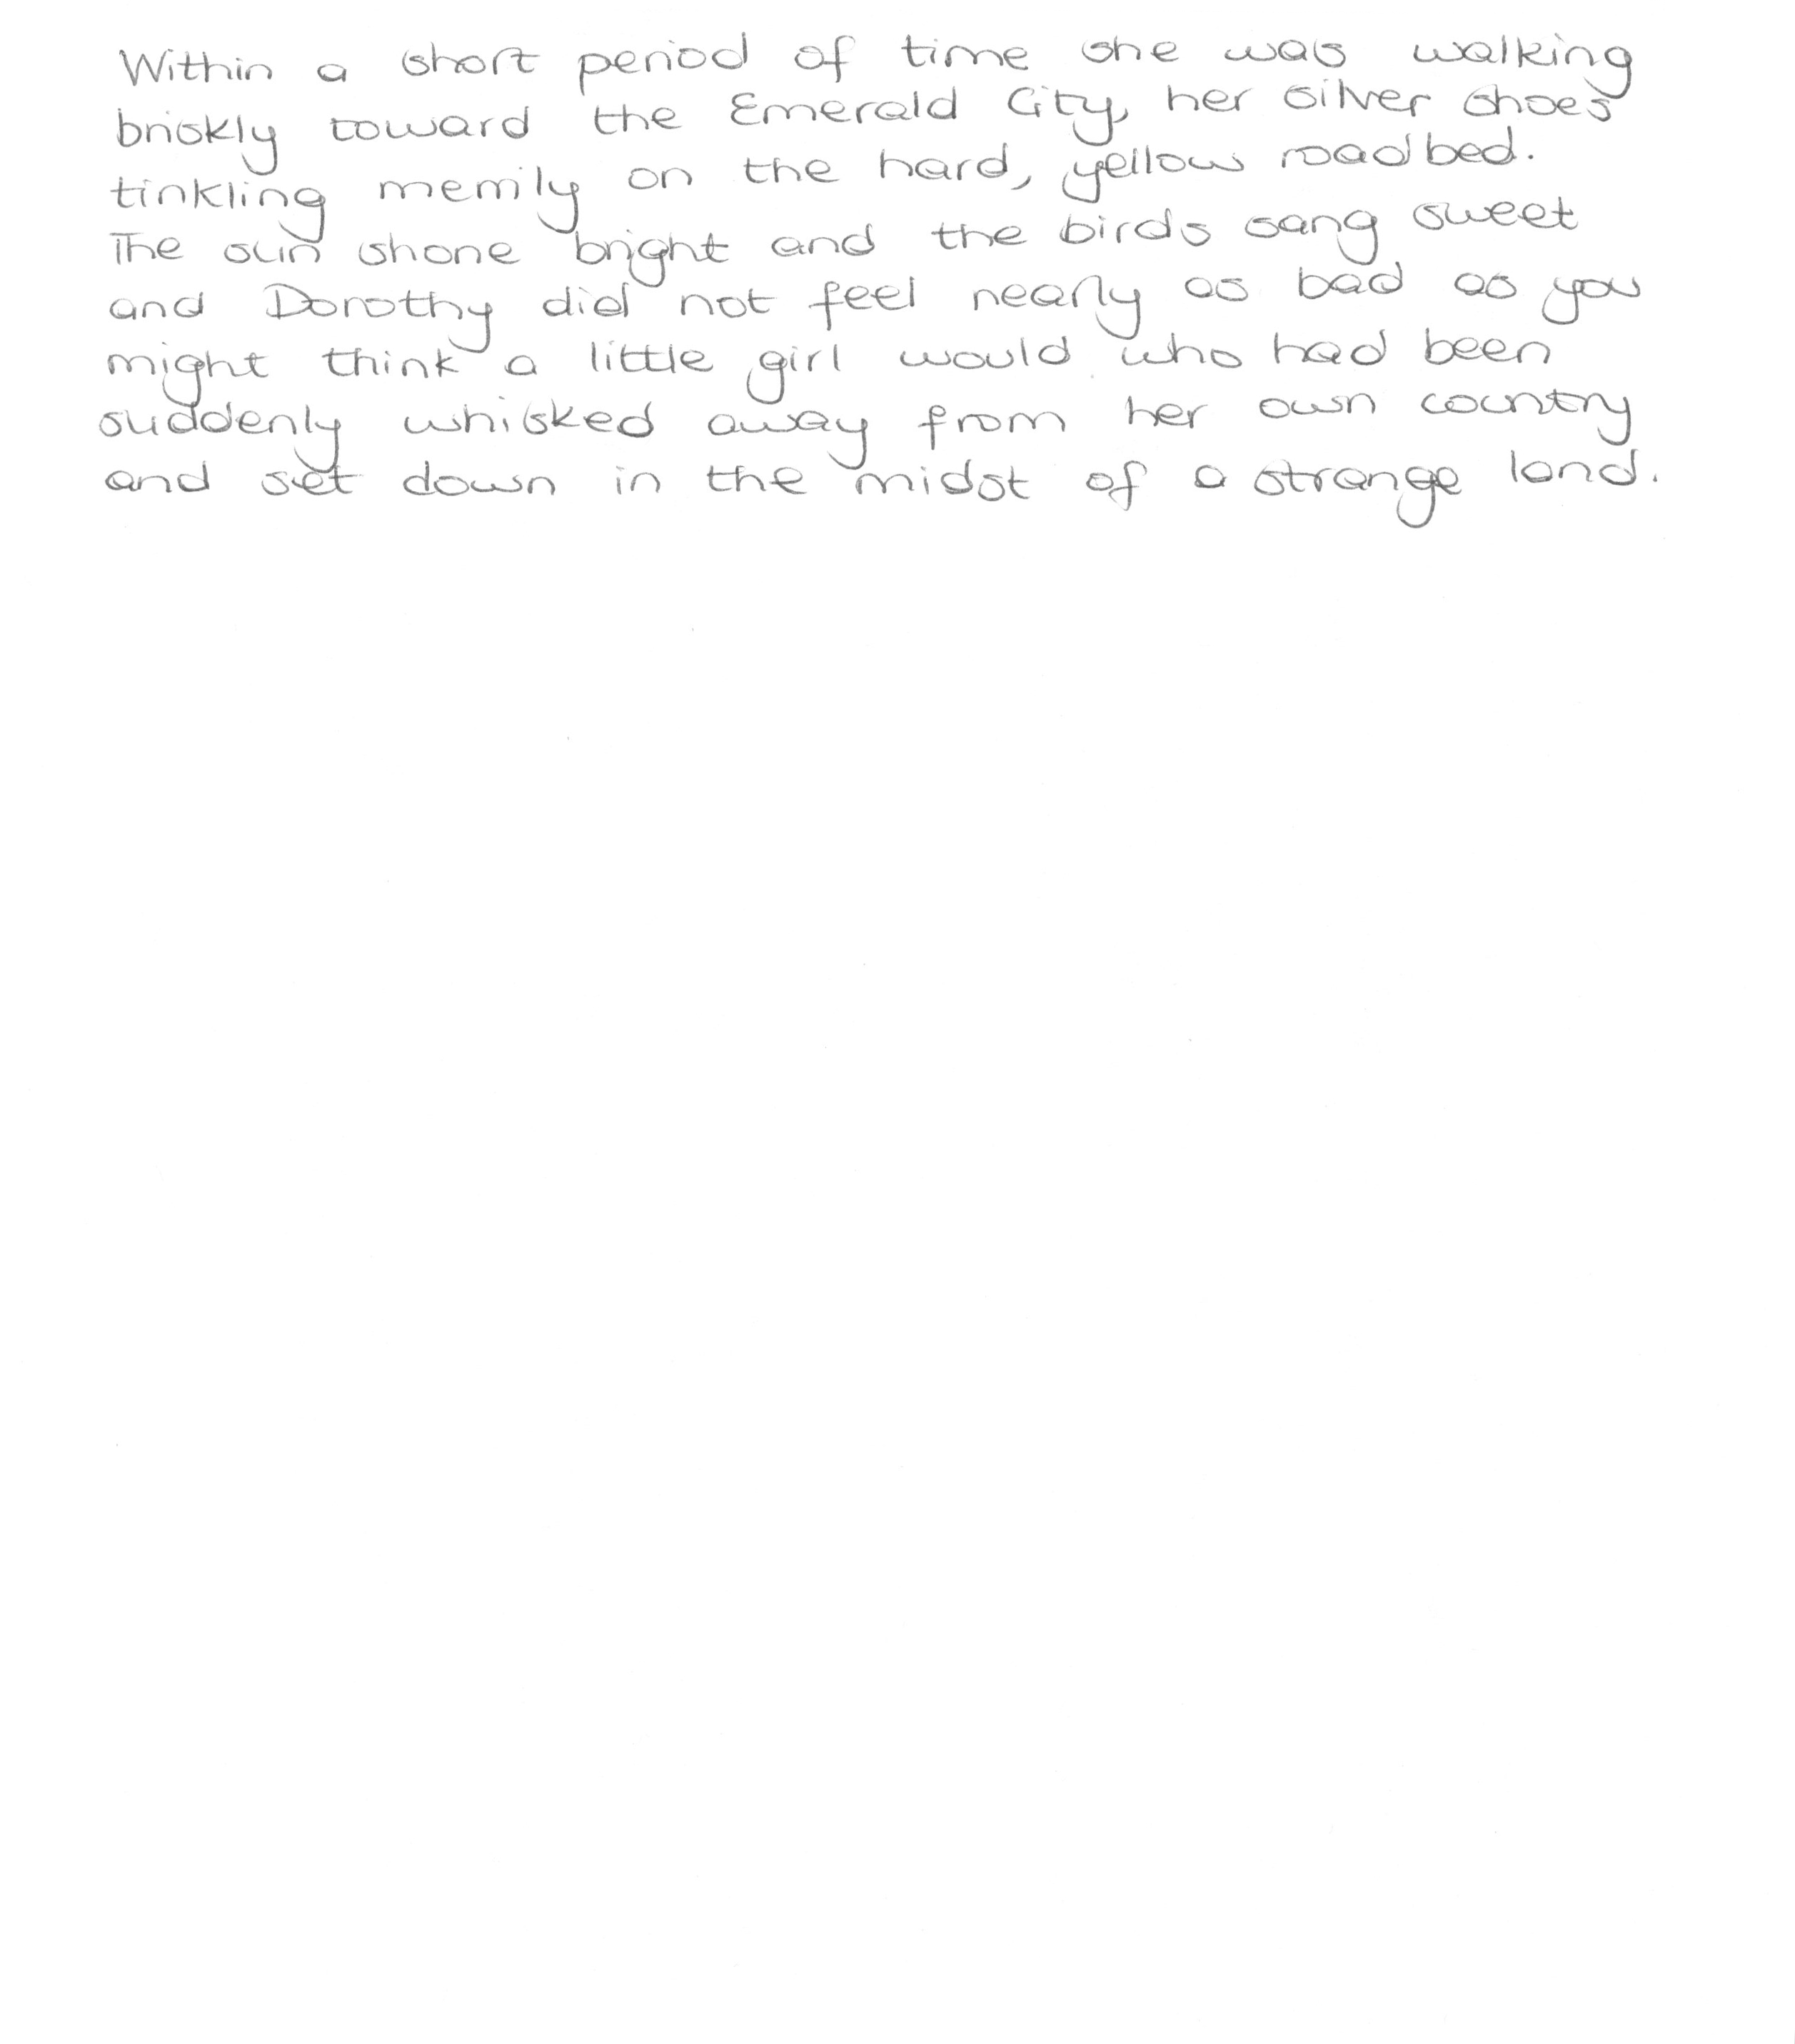 Within a short period of time she was walking
briskly toward the Emerald City, her silver shoes
tinkling merrily on the hard, yellow roadbed.
The sun shone bright and the birds sang sweet
and Dorothy did not feel nearly as bad as you
might think a little girl would who had been
suddenly whisked away from her own country
and set down in the midst of a strange land.